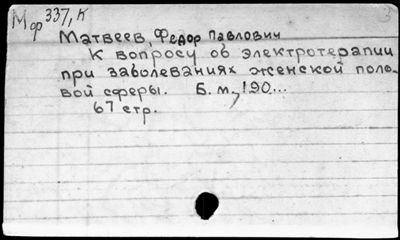 Мф 337, К 3
Матвеев, Федор Павлович
К вопросу об электротерапии
при заболеваниях женской поло-
вой сферы. Б. м., 190...
67 стр.